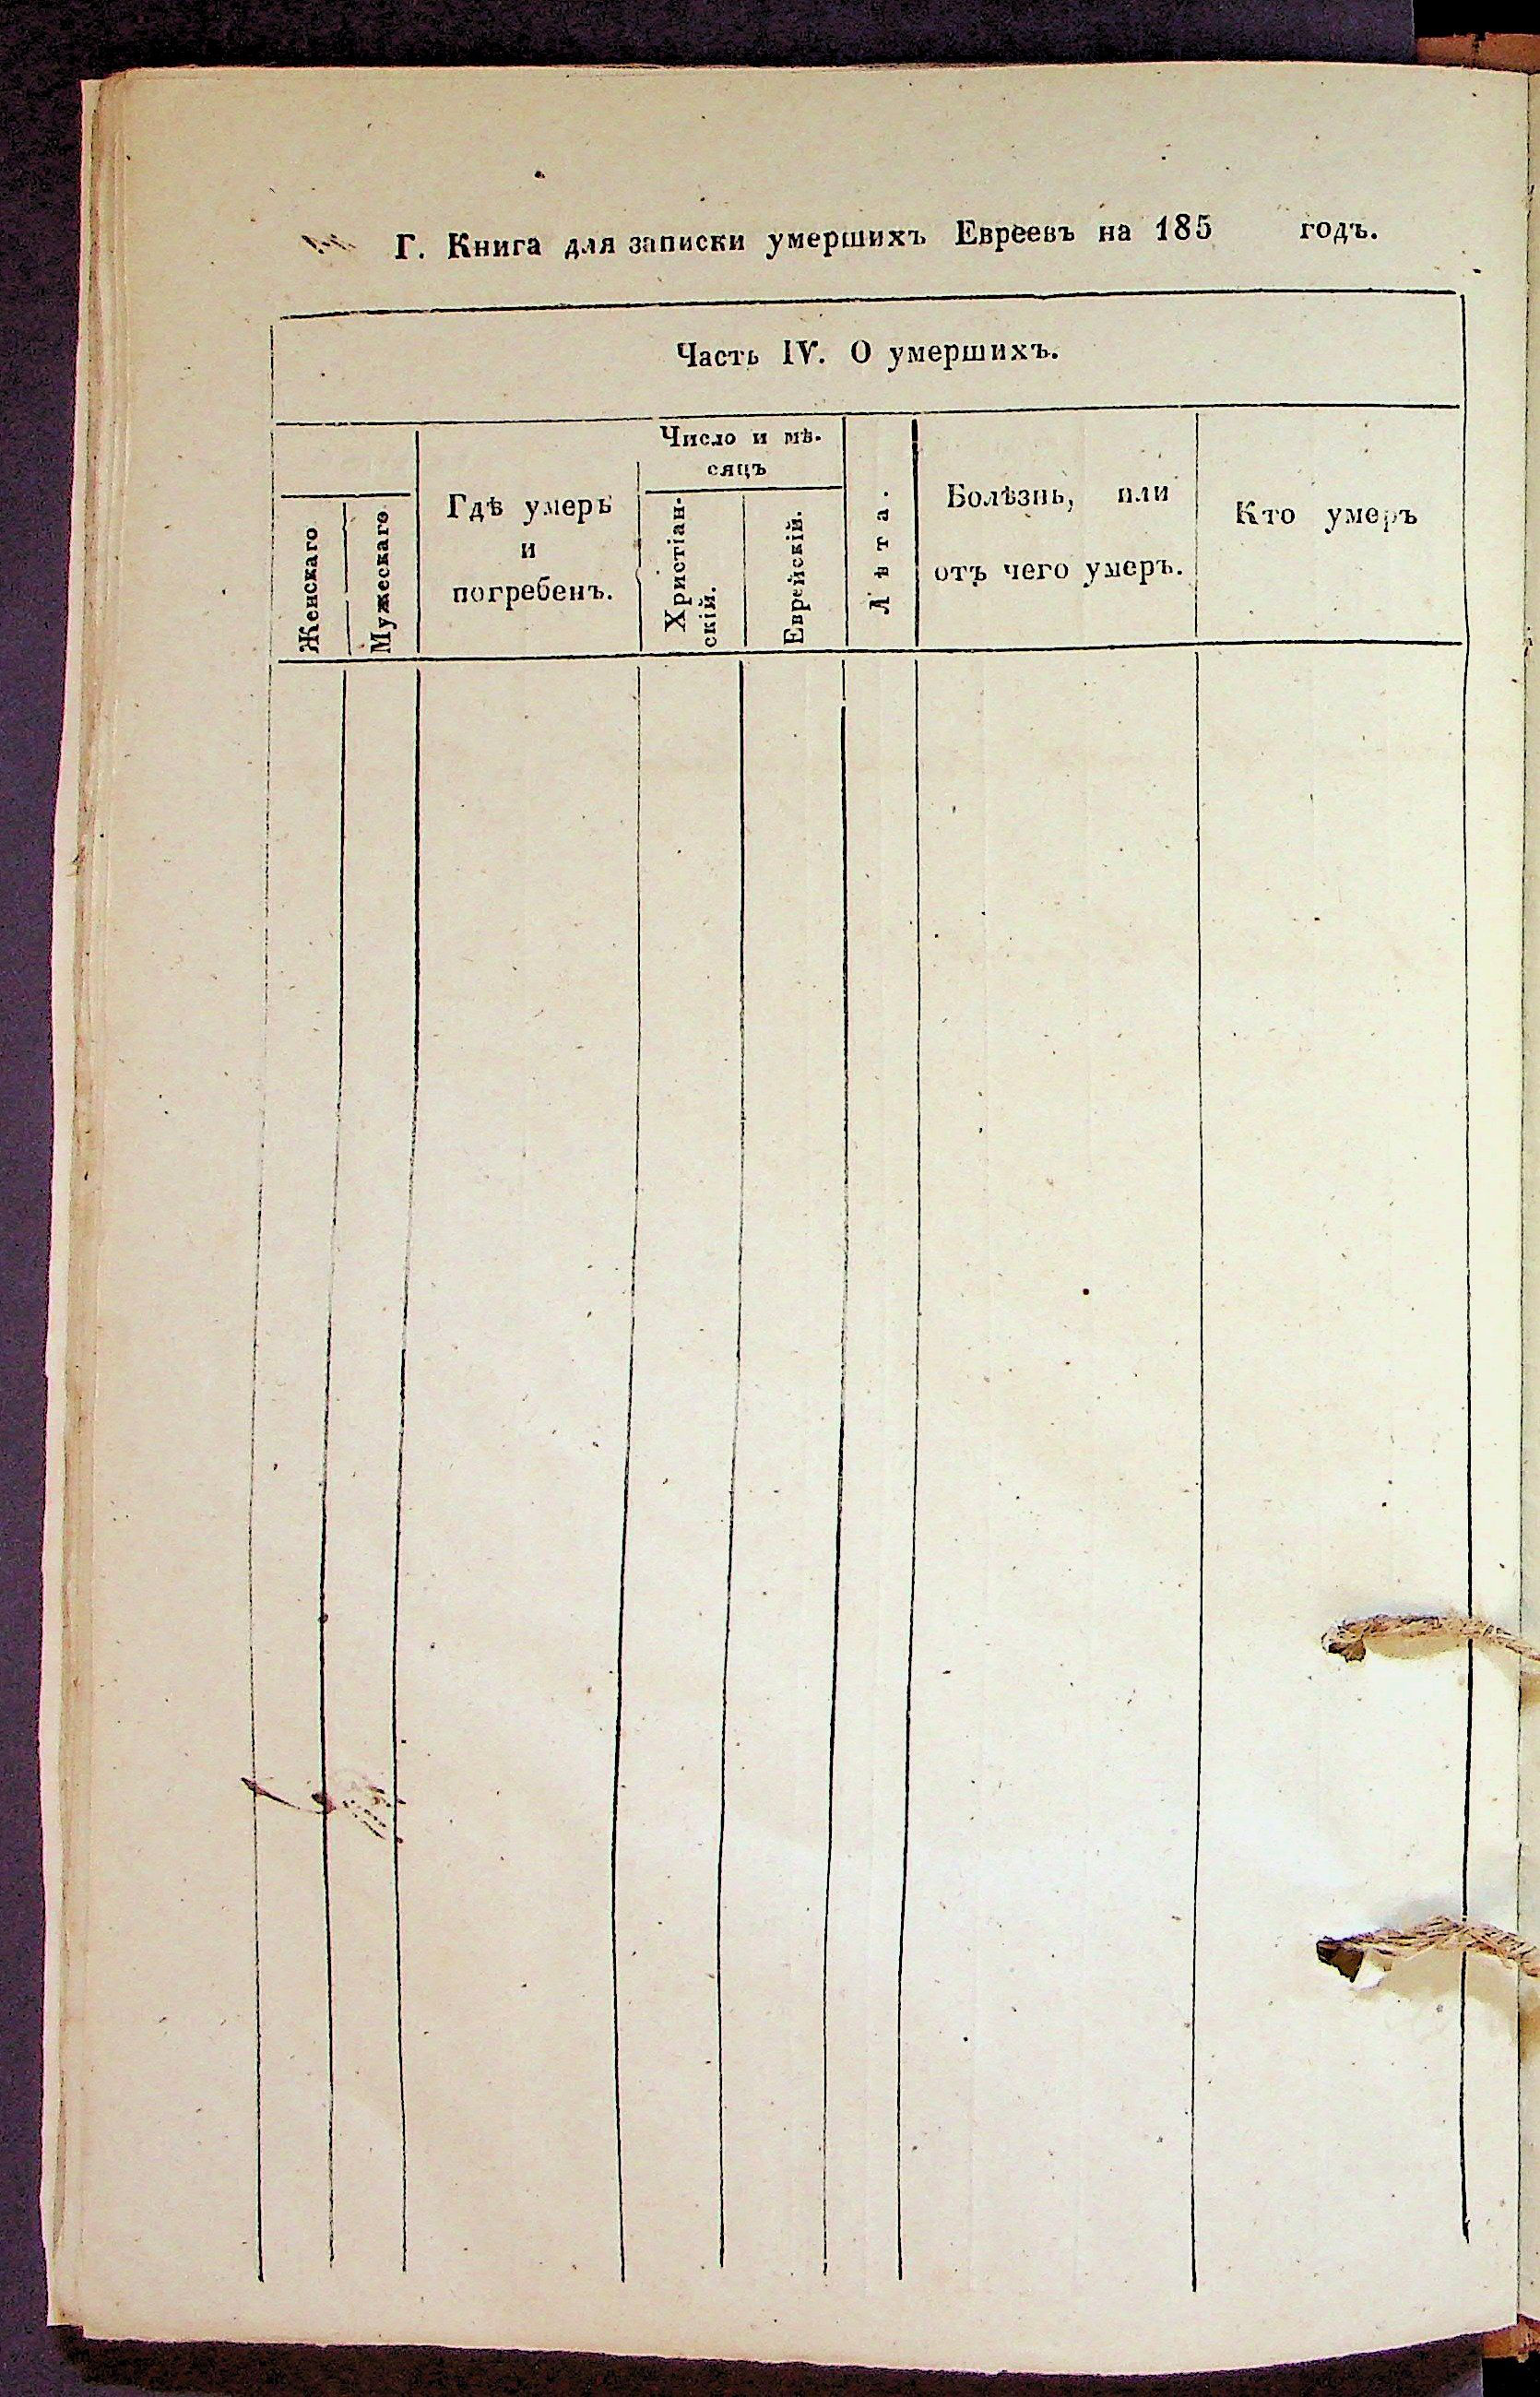 Г. Книга для записки умершихъ Евреевъ на 185 годъ.
Часть IV. О умершихъ.
Женскаго
Мужескаго
Гдѣ умеръ
и
погребенъ.
Число и мѣ-
сяцъ
Христіан-
скій.
Еврейскій.
Лѣта.
Болѣзнь, или
отъ чего умеръ.
Кто умеръ